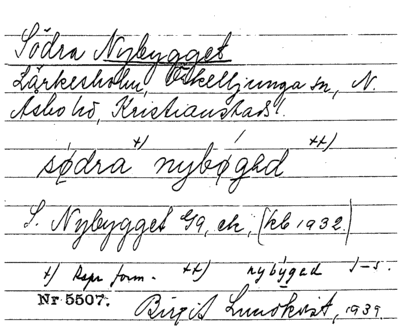 Södra Nybygget
Lärkesholm, Örkelljunga sn, N.
Åsbo hd, Kristianstads l.
sødra +) nybøgəd ++)
S. Nybygget Gg, ek, (kb 1932.)
+) Rspr form. ++) nybýgəd J-s.
Nr 5507. Birgit Lundkvist, 1939.